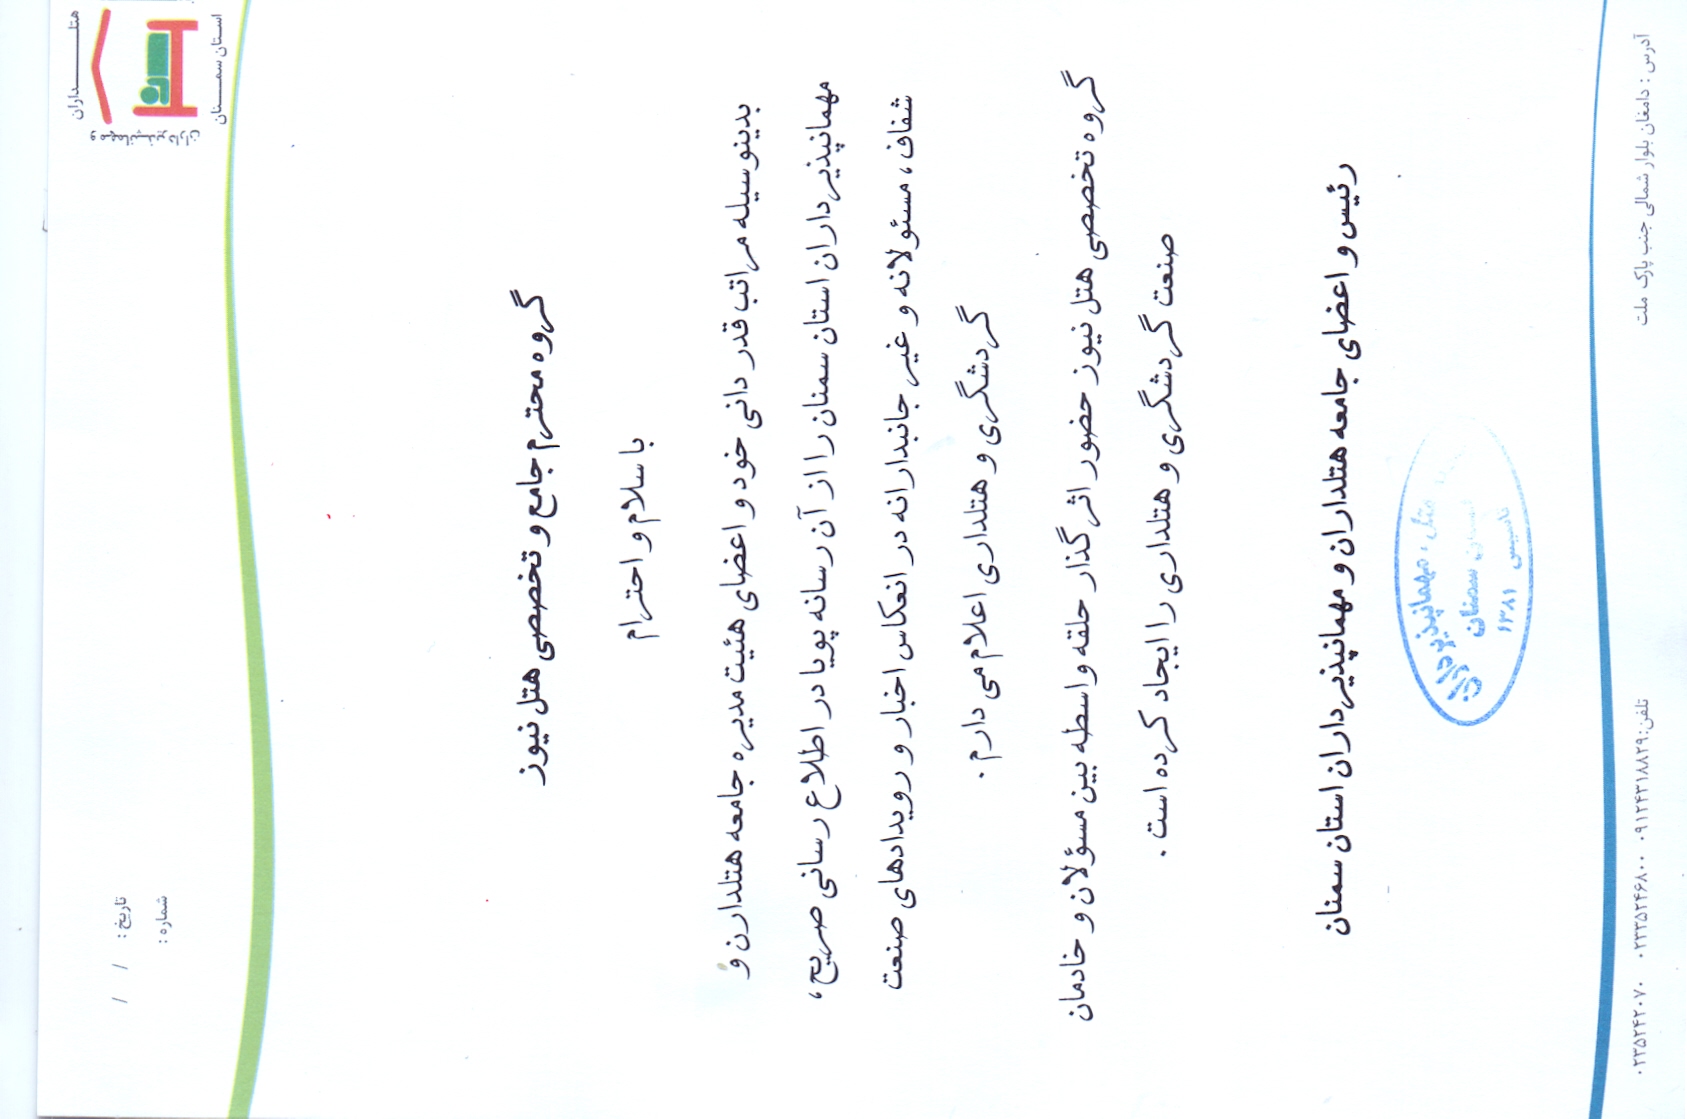 هتلــــداران
و مهمانپــذیر داران
استان سمــنان
تاریخ :    /    /
شماره :
گروه محترم جامع و تخصصی هتل نیوز
با سلام و احترام
بدینوسیله مراتب قدر دانی خود و اعضای هئیت مدیره جامعه هتلدارن و
مهمانپذیرداران استان سمنان را از آن رسانه پویا در اطلاع رسانی صریح،
شفاف، مسئولانه و غیر جانبدارانه در انعکاس اخبار و رویدادهای صنعت
گردشگری و هتلداری اعلام می دارم .
گروه تخصصی هتل نیوز حضور اثر گذار حلقه واسطه بین مسؤلان و خادمان
صنعت گردشگری و هتلداری را ایجاد کرده است .
رئیس و اعضای جامعه هتلداران و مهمانپذیرداران استان سمنان
هتل ، مهمانپذیر داران
استان سمنان
تاسیس ۱۳۸۱
آدرس : دامغان بلوار شمالی جنب پارک ملت
تلفن:۰۹۱۲۴۳۱۸۸۲۹   ۰۲۳۳۵۲۴۶۸۰۰   ۰۲۳۵۲۴۲۰۷۰